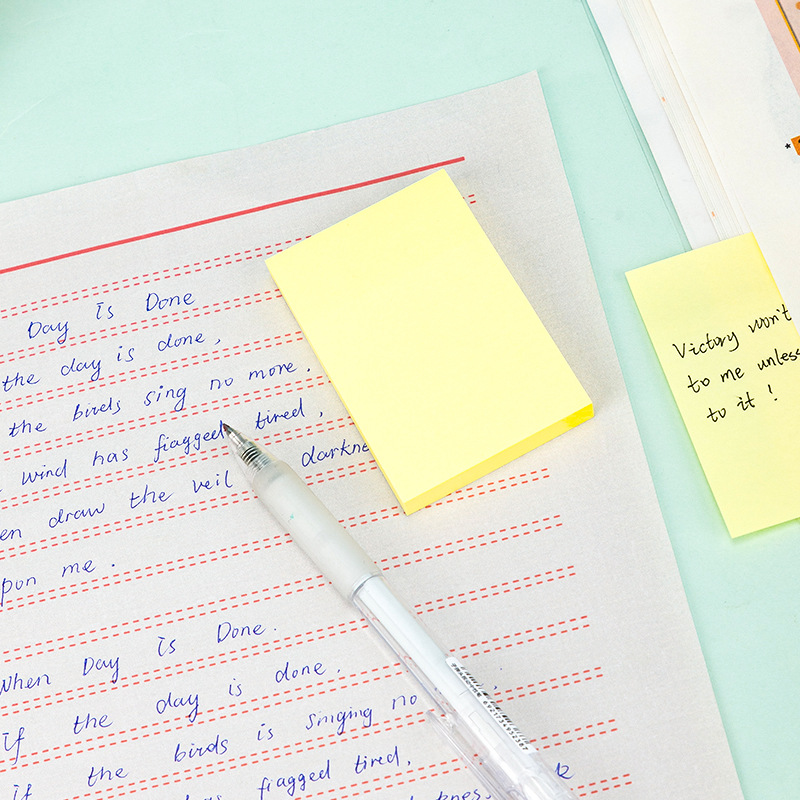 Day is Done
the day is done,
the birds sing no more.
wind has fiagged tired,
draw the veil darkne
pon me.
When Day is Done.
If the day is done.
If the birds is singing no
has fiagged tired,
Victory won't
to me unless
to it!